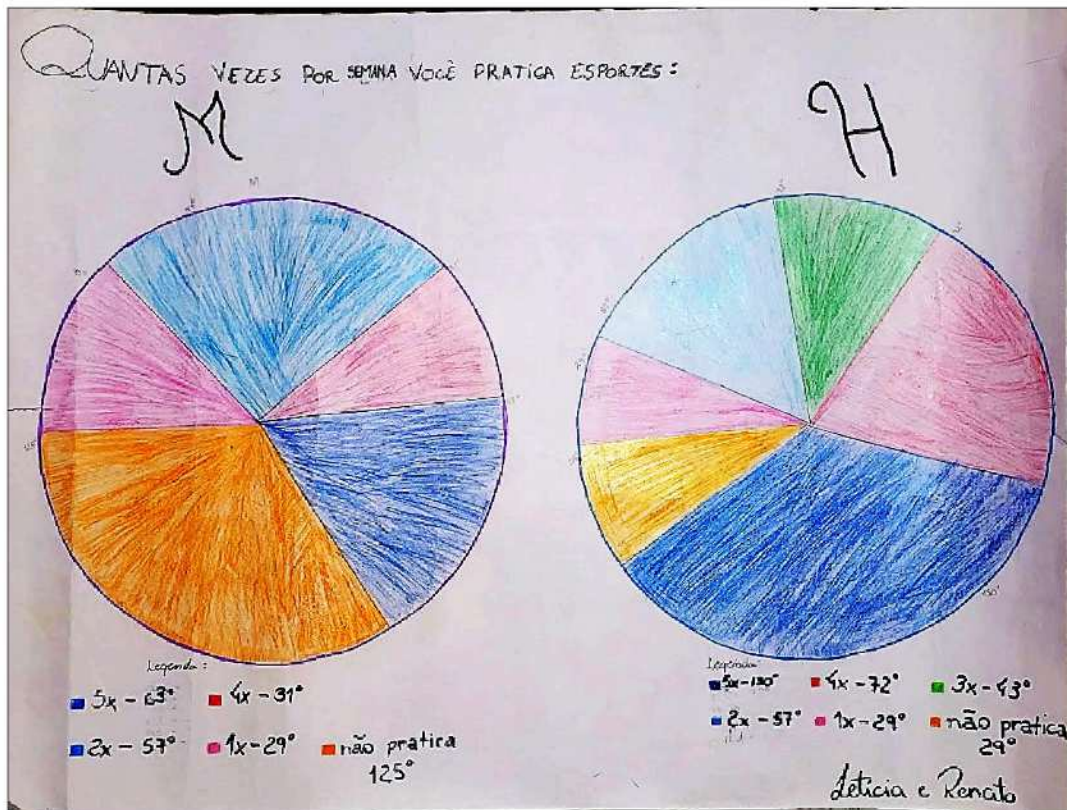 QUANTAS VEZES POR SEMANA VOCÊ PRATICA ESPORTES:
M
H
M
Legenda:
5x - 63°
4x - 31°
2x - 57°
1x - 29°
não pratica
125°
Legenda:
5x - 130°
4x - 72°
3x - 43°
2x - 57°
1x - 29°
não pratica
29°
Letícia e Renato